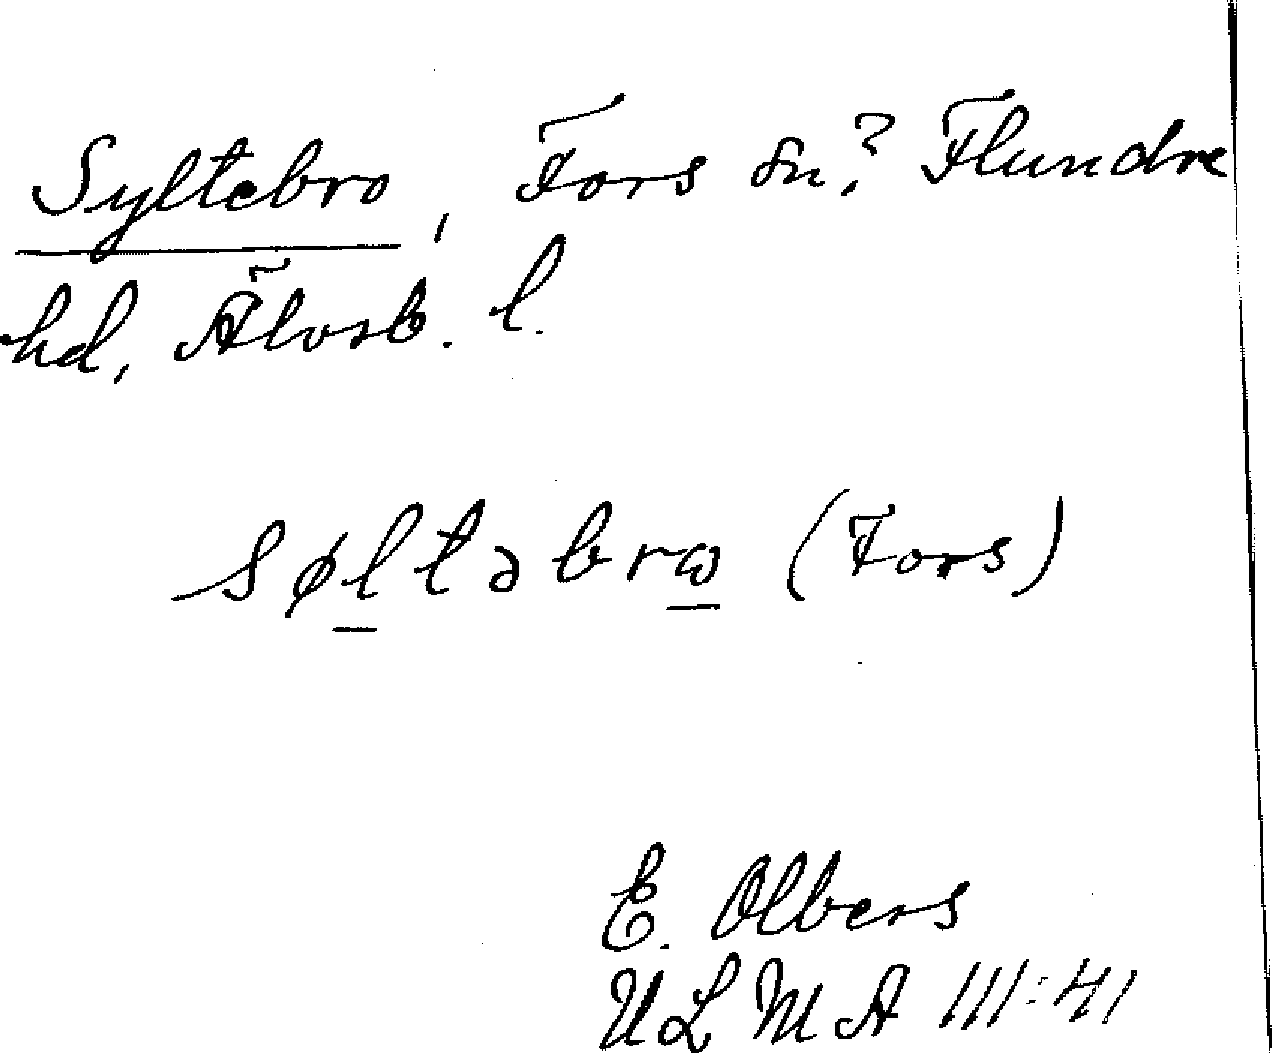 Syltebro, Fors sn.? Flundre
hd, Älvsb. l.
søltəbrω (Fors)
E. Olbers
ULMA 111:41